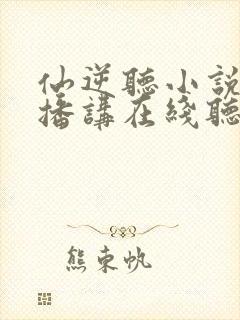 仙逆聽小說
播講在綫聽
熊東帆